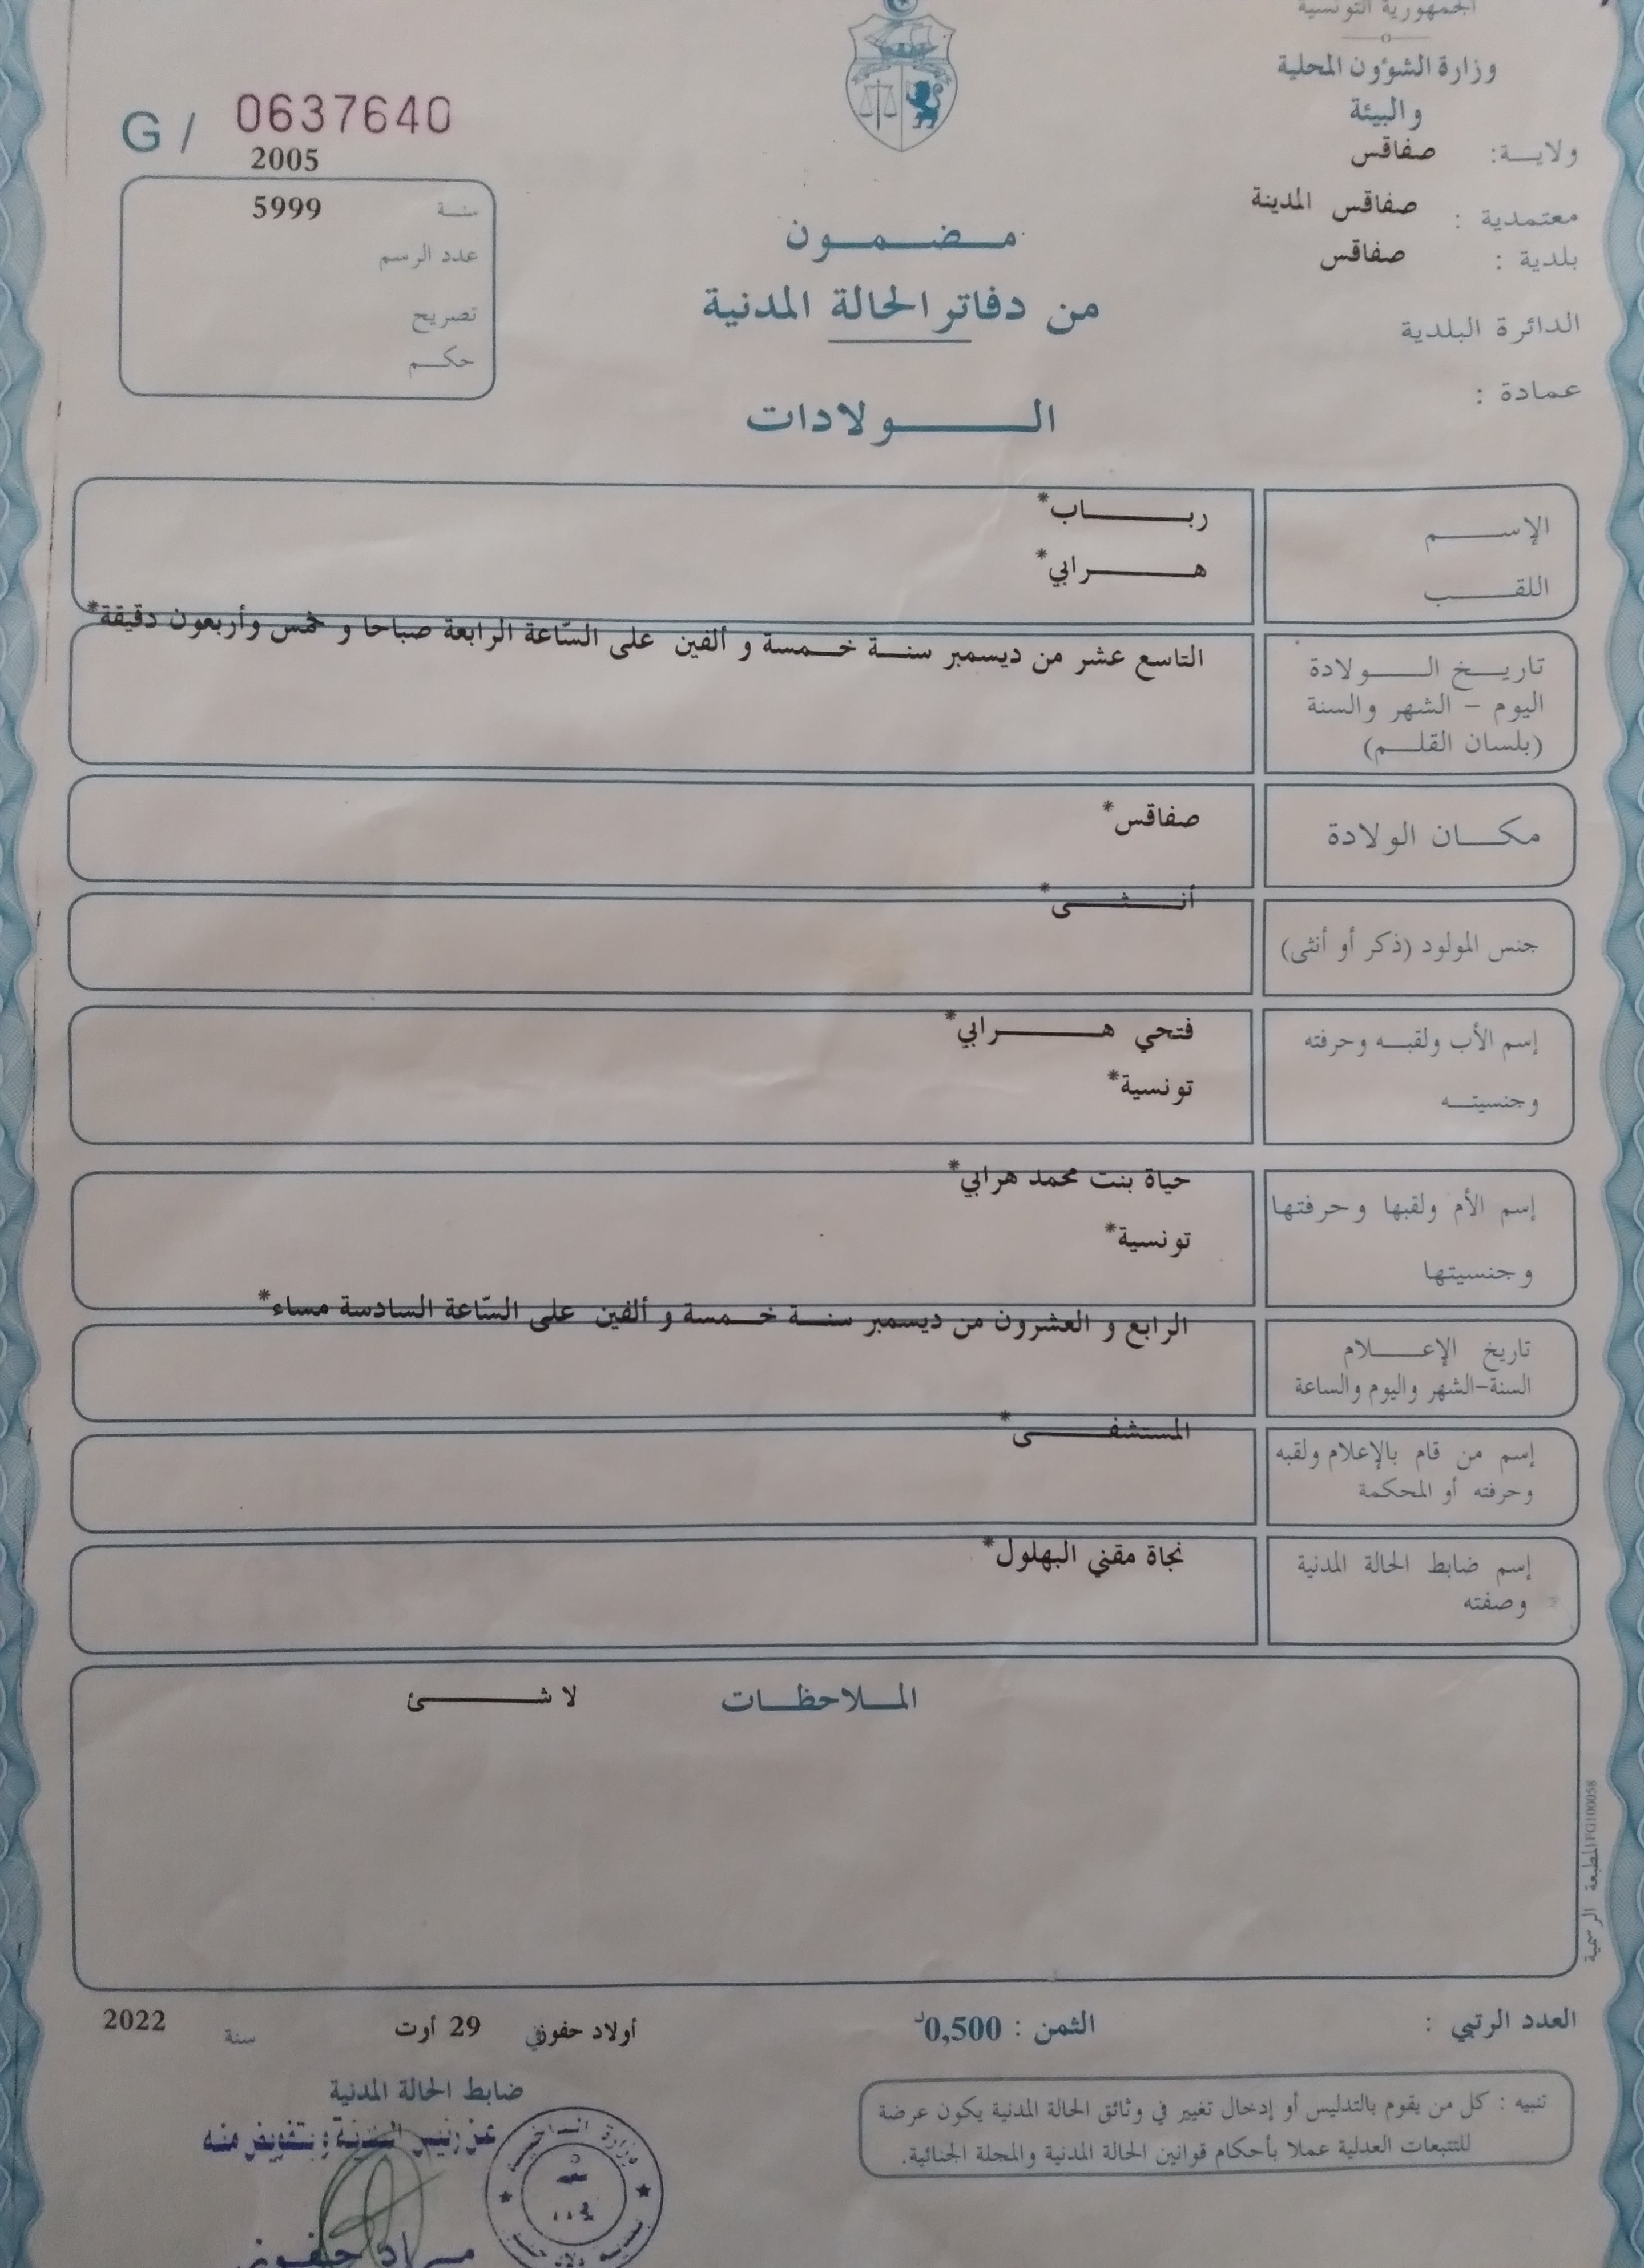 الجمهورية التونسية
وزارة الشؤون المحلية
والبيئة
ولاية: صفاقس
معتمدية : صفاقس المدينة
بلدية : صفاقس
الدائرة البلدية
عمادة :
G / 0637640
2005
سنة 5999
عدد الرسم
تصريح
حكم
مضمون
من دفاتر الحالة المدنية
الولادات
الإسم رباب*
اللقب هرابي*
التاسع عشر من ديسمبر سنة خمسة و ألفين على السّاعة الرابعة صباحا و خمس وأربعون دقيقة*
تاريخ الولادة
اليوم - الشهر والسنة
(بلسان القلم)
مكان الولادة صفاقس*
أنثى*
جنس المولود (ذكر أو أنثى)
إسم الأب ولقبه وحرفته فتحي هرابي*
وجنسيته تونسية*
إسم الأم ولقبها وحرفتها حياة بنت محمد هرابي*
وجنسيتها تونسية*
الرابع و العشرون من ديسمبر سنة خمسة و ألفين على السّاعة السادسة مساء*
تاريخ الإعلام
السنة-الشهر واليوم والساعة
المستشفى*
إسم من قام بالإعلام ولقبه
وحرفته أو المحكمة
إسم ضابط الحالة المدنية نجاة مقني البهلول*
وصفته
الملاحظات لا شئ
المطبعة الرسمية FG100058
العدد الرتبي : الثمن : 0,500د أولاد حفوز في 29 أوت سنة 2022
ضابط الحالة المدنية
عن رئيس البلدية وبتفويض منه
تنبيه : كل من يقوم بالتدليس أو إدخال تغيير في وثائق الحالة المدنية يكون عرضة
للتتبعات العدلية عملا بأحكام قوانين الحالة المدنية والمجلة الجنائية.
وزارة الداخلية